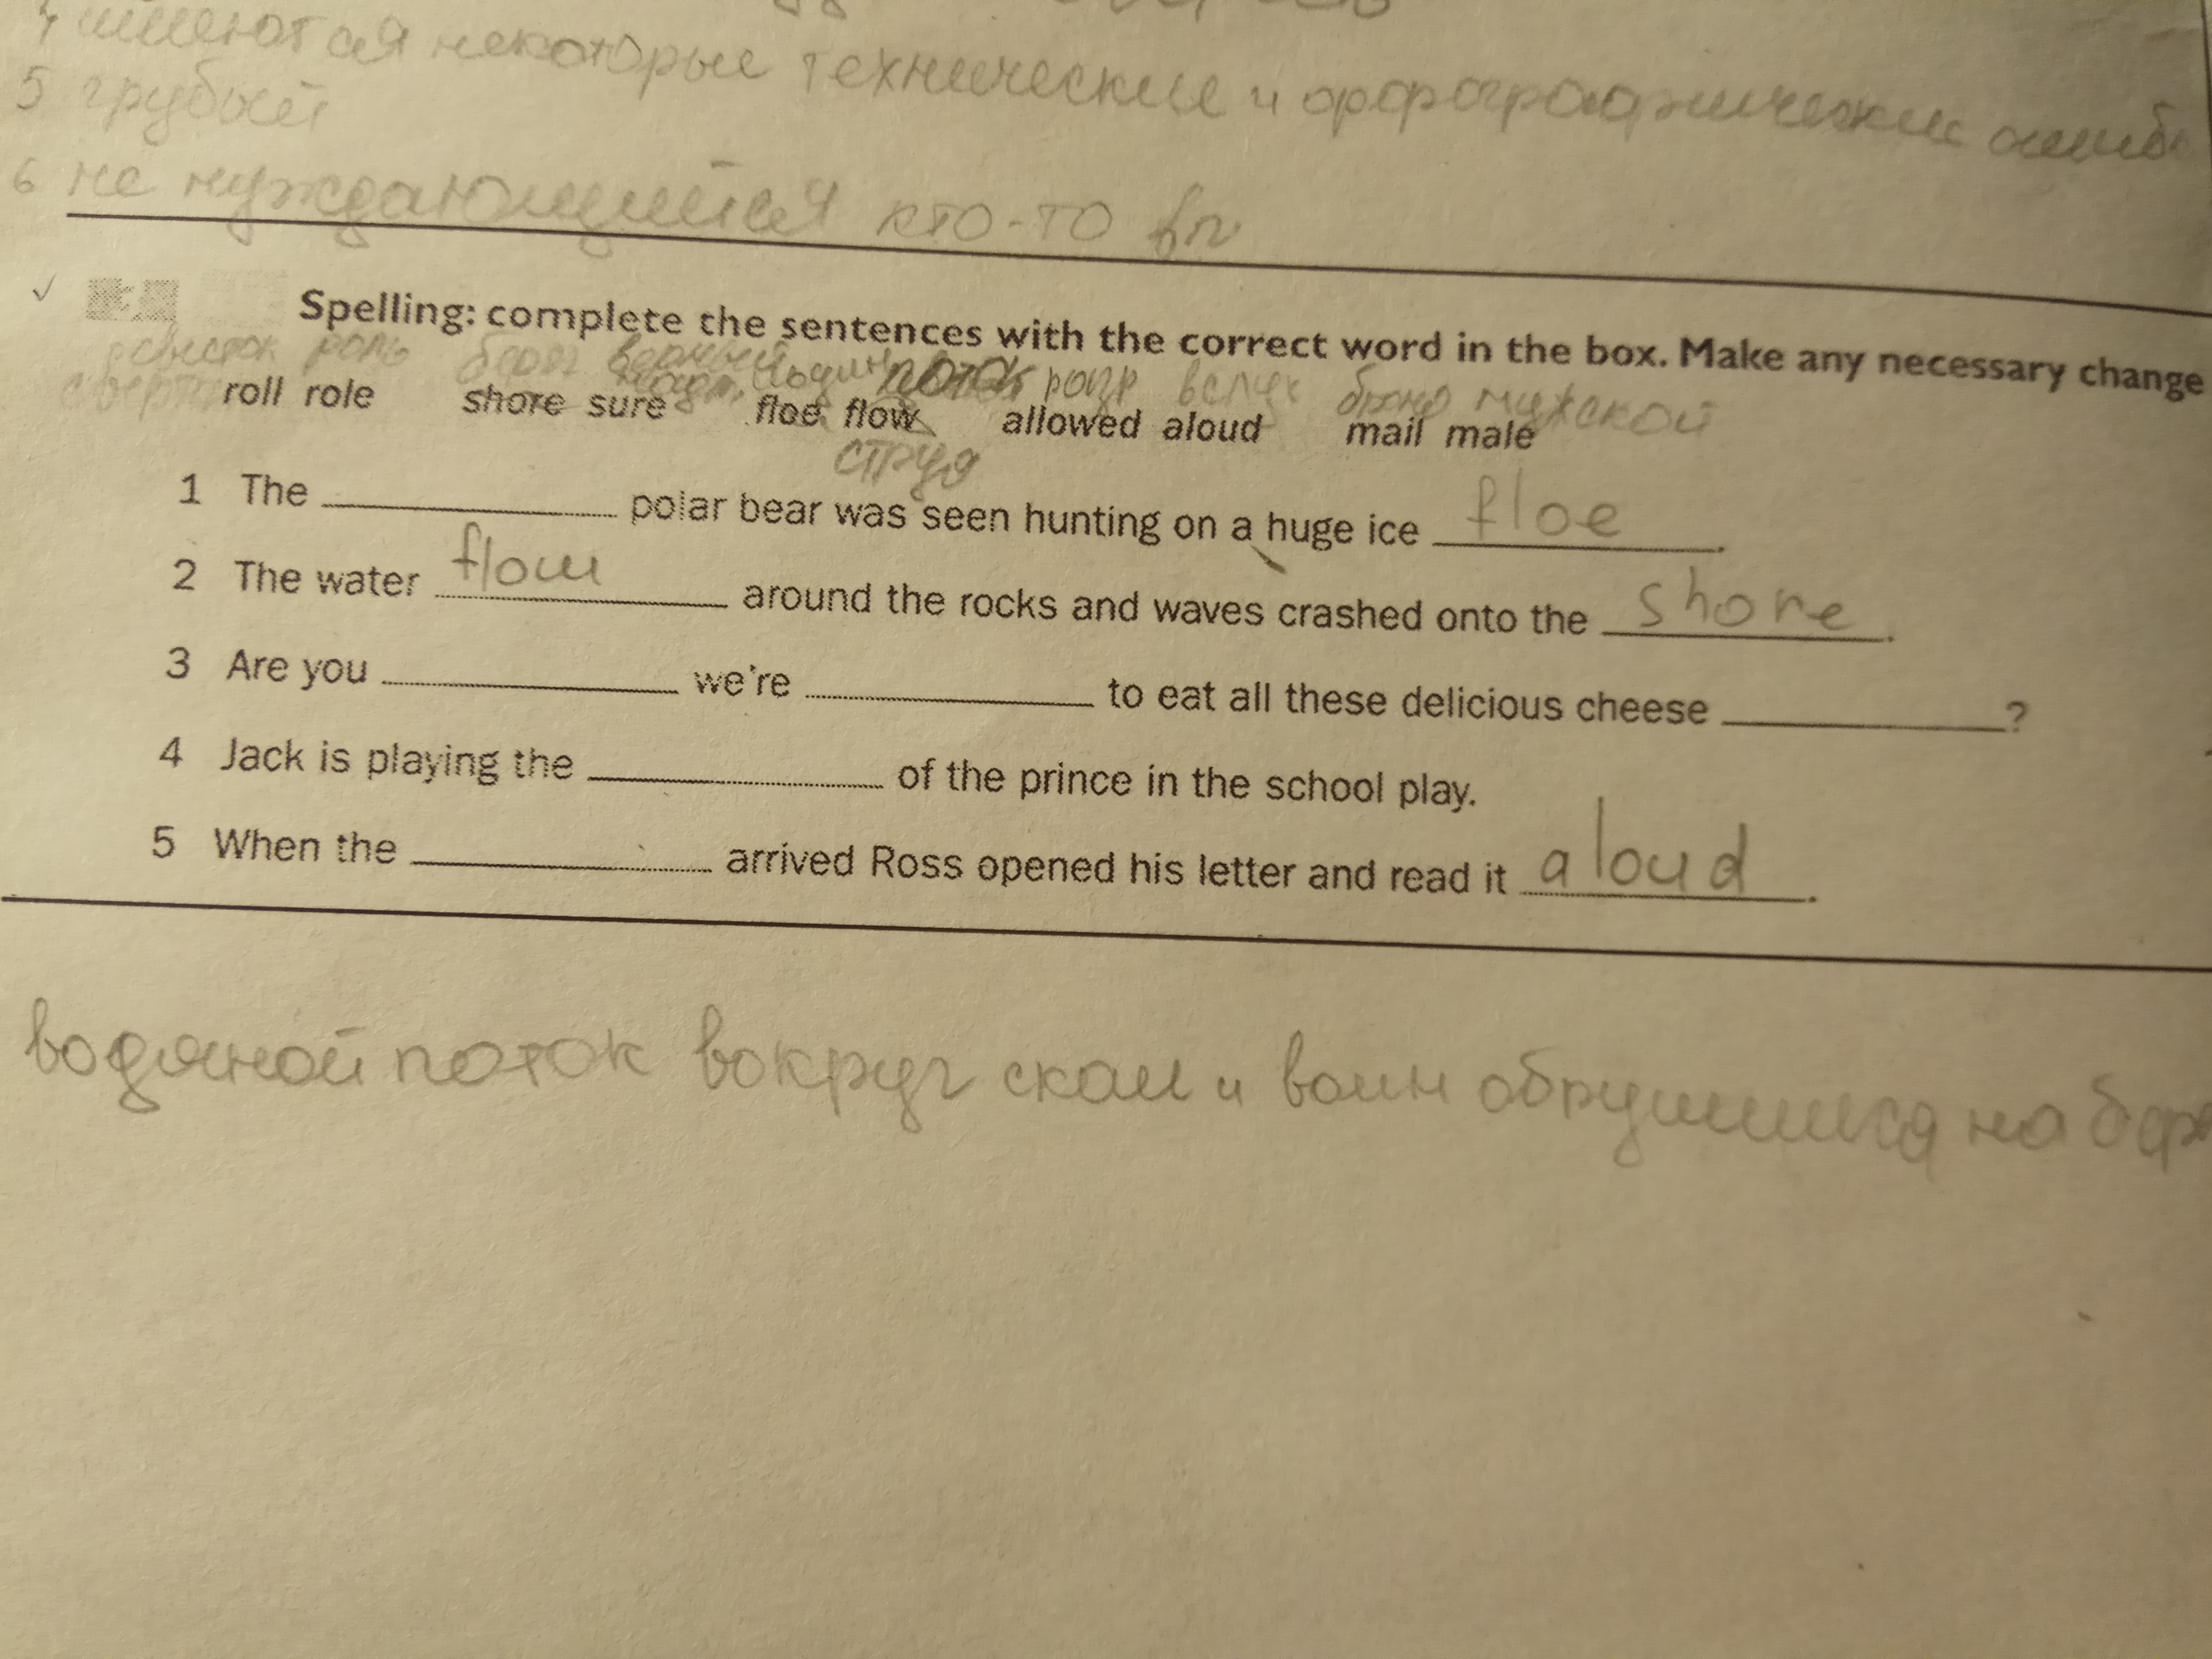 имеются некоторые технические и орфографические ошиб
5 грубый
6 не нуждающийся кто-то
Spelling: complete the sentences with the correct word in the box. Make any necessary change
роль берег поток вслух мужской
roll role shore sure floe flow allowed aloud mail male
струя
1 The polar bear was seen hunting on a huge ice floe.
2 The water flow around the rocks and waves crashed onto the shore.
3 Are you we're to eat all these delicious cheese ?
4 Jack is playing the of the prince in the school play.
5 When the arrived Ross opened his letter and read it aloud.
водяной поток вокруг скал и волн на бер